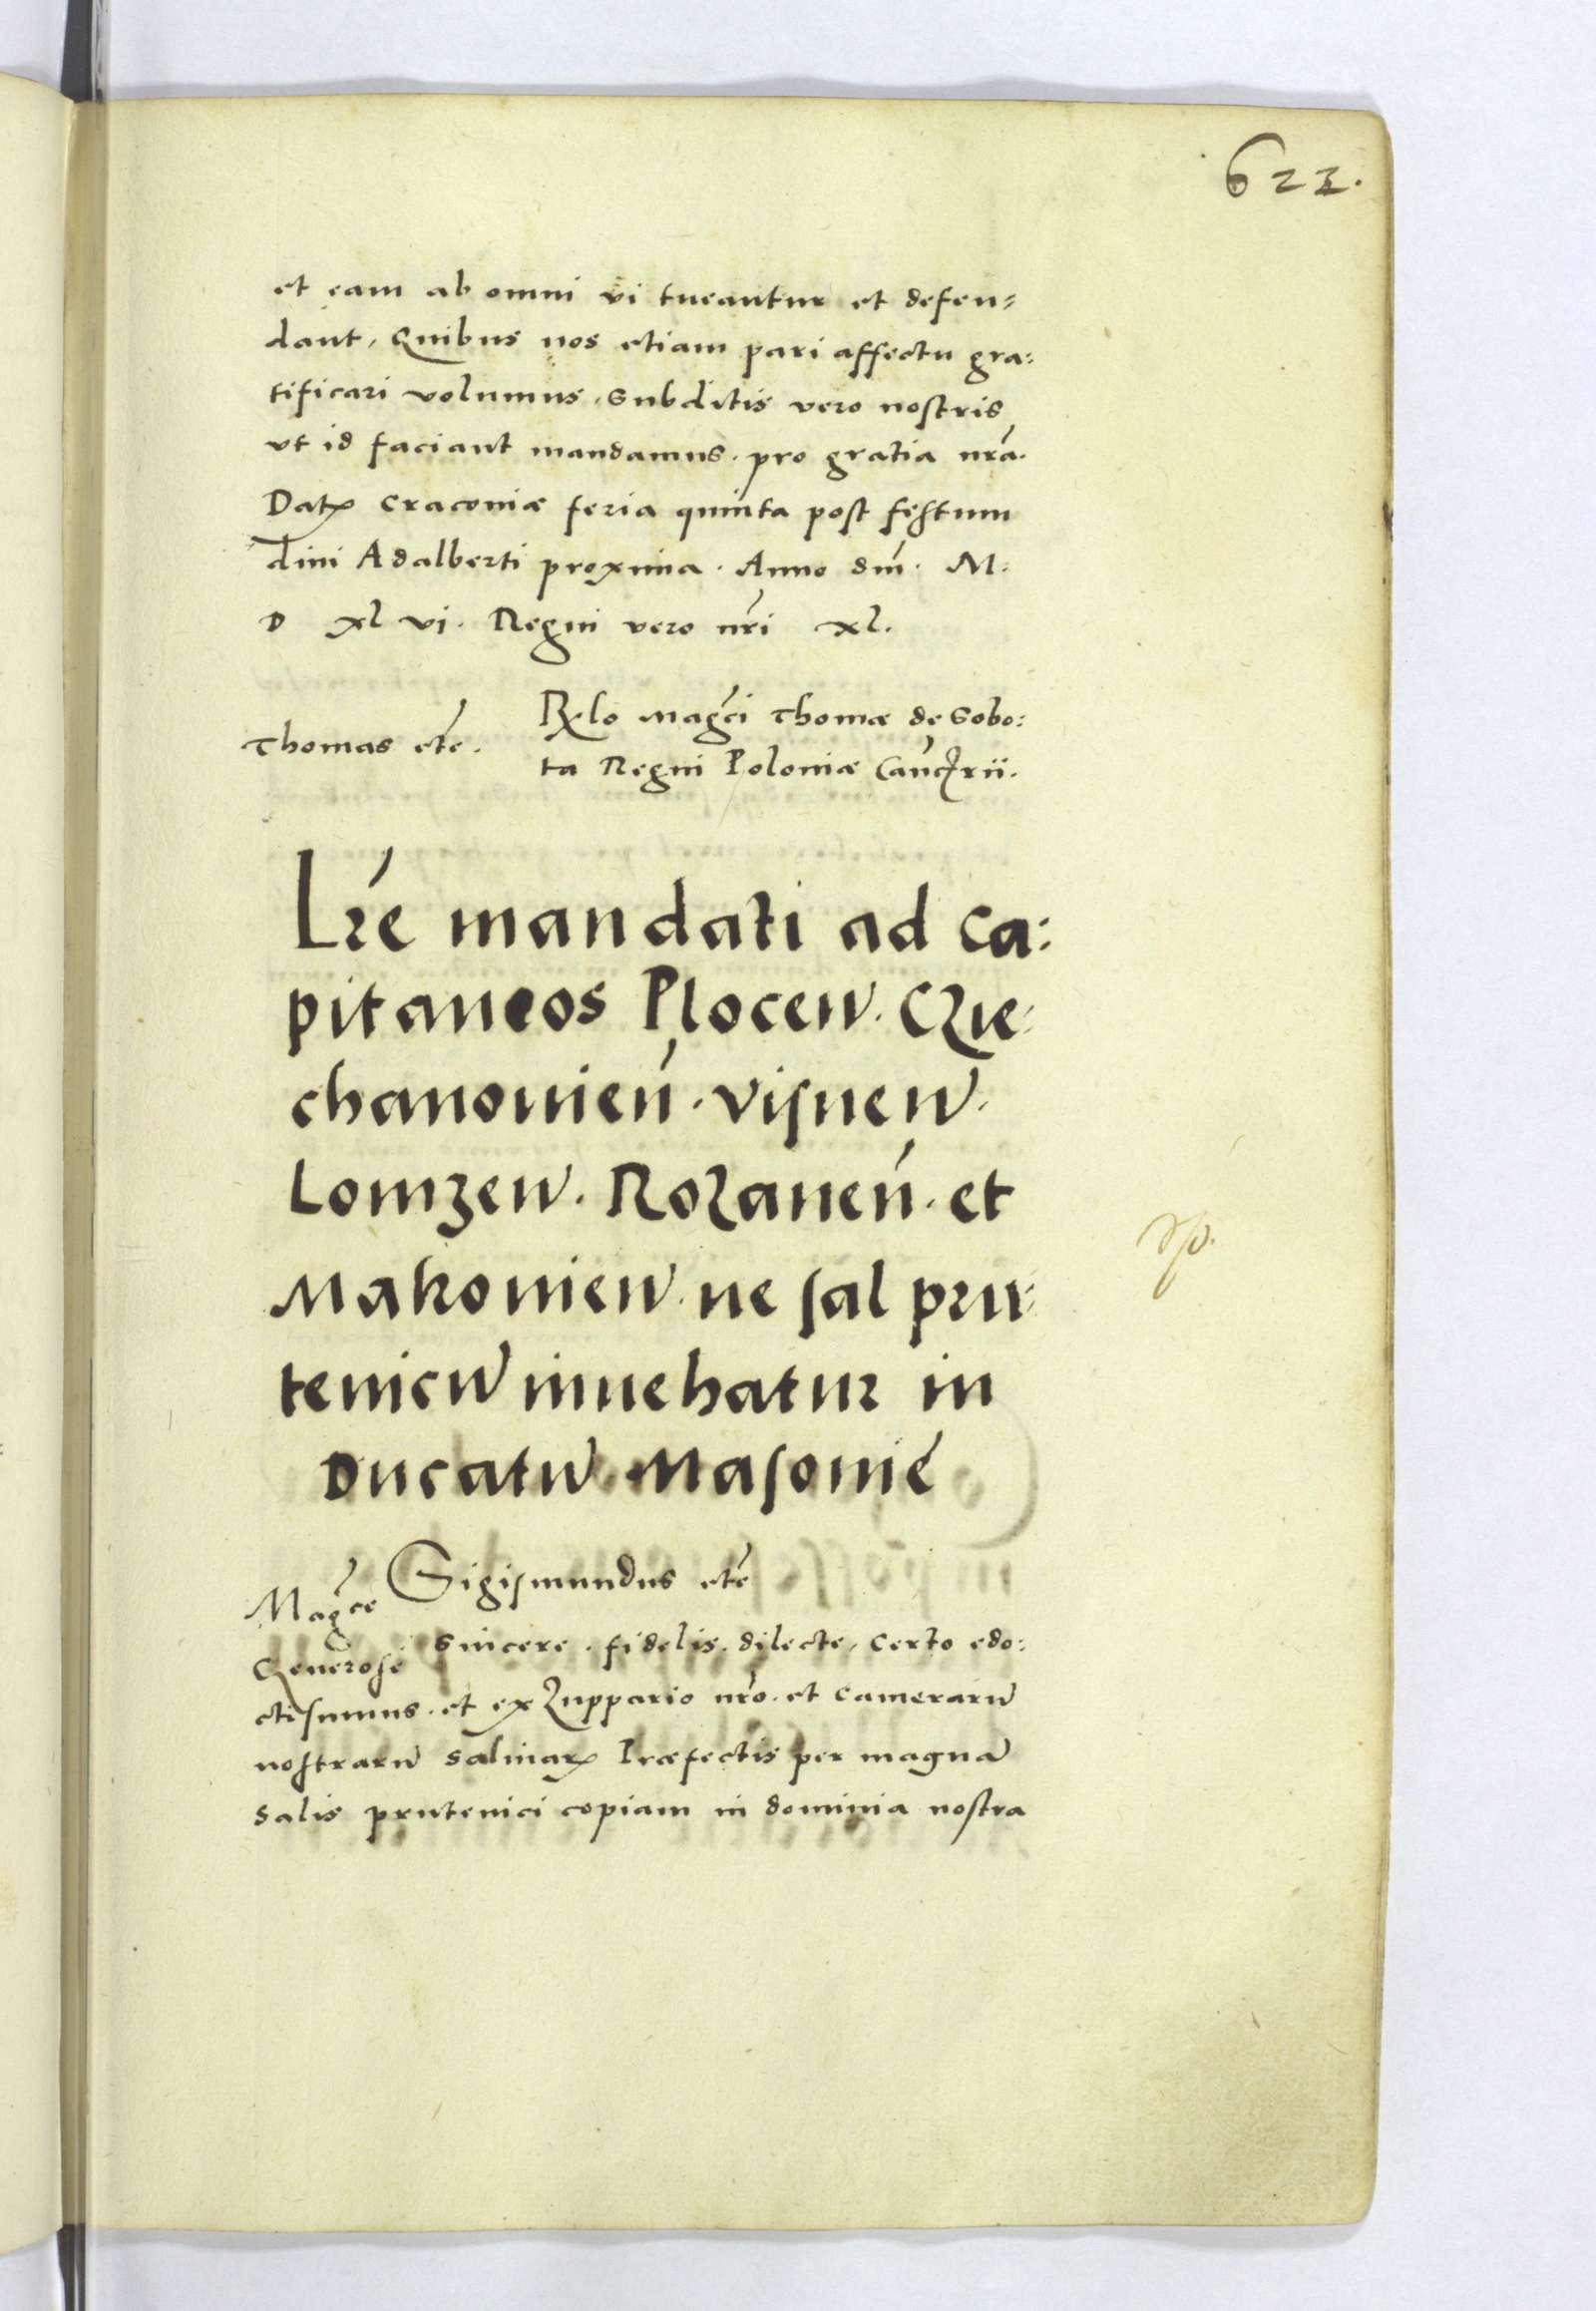 623.
et eam ab omni vi tueantur et defen=
dant, Quibus nos etiam pari affectu gra:
tificari volumus. Subditis vero nostris
vt id faciant mandamus. pro gratia nrã.
Datꝝ Craconiæ feria quinta post festum
diui Adalberti proxima. Anno dnĩ. M.
D xl vi. Regni vero nri xl.
Thomas etc̃.
Rlo Magci Thomæ de Sobo:
ta Regni Poloniæ Canclrii.
Lr̃e mandati ad Ca:
pitaneos Plocen̄. Czie:
chanouien̄. Visnen̄.
Lomzen̄. Rozanen̄. et
Makouien̄. ne sal pru:
tenicū inuehatur in
Ducatū Masouiẽ
Sigismundus etc̃
Magce
Generose Sincere. fidelis. dilecte, Certo edo:
cti sumus. et ex Zuppario nrõ. et Camerarū
nostrarū Salinarꝝ Præfectis per magnā
Salis prutenici copiam in dominia nostra